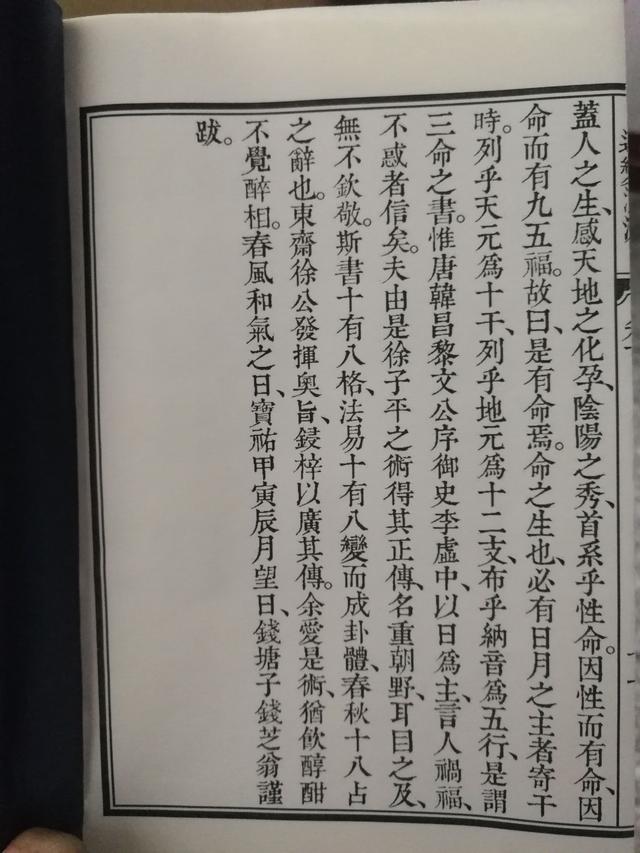 蓋人之生、感天地之化孕、陰陽之秀、首系乎性命。因性而有命、因
命而有九五福。故曰、是有命焉。命之生也、必有日月之主者寄干
時。列乎天元爲十干、列乎地元爲十二支、布乎納音爲五行、是謂
三命之書。惟唐韓昌黎文公序御史李虛中、以日爲主、言人禍福、
不惑者信矣。夫由是徐子平之術得其正傳、名重朝野、耳目之及、
無不欽敬。斯書十有八格、法易十有八變而成卦、體春秋十八占
之辭也。東齋徐公發揮奧旨、鋟梓以廣其傳。余愛是術、猶飲醇酣
不覺醉相。春風和氣之日、寶祐甲寅辰月望日、錢塘子錢芝翁謹
跋。